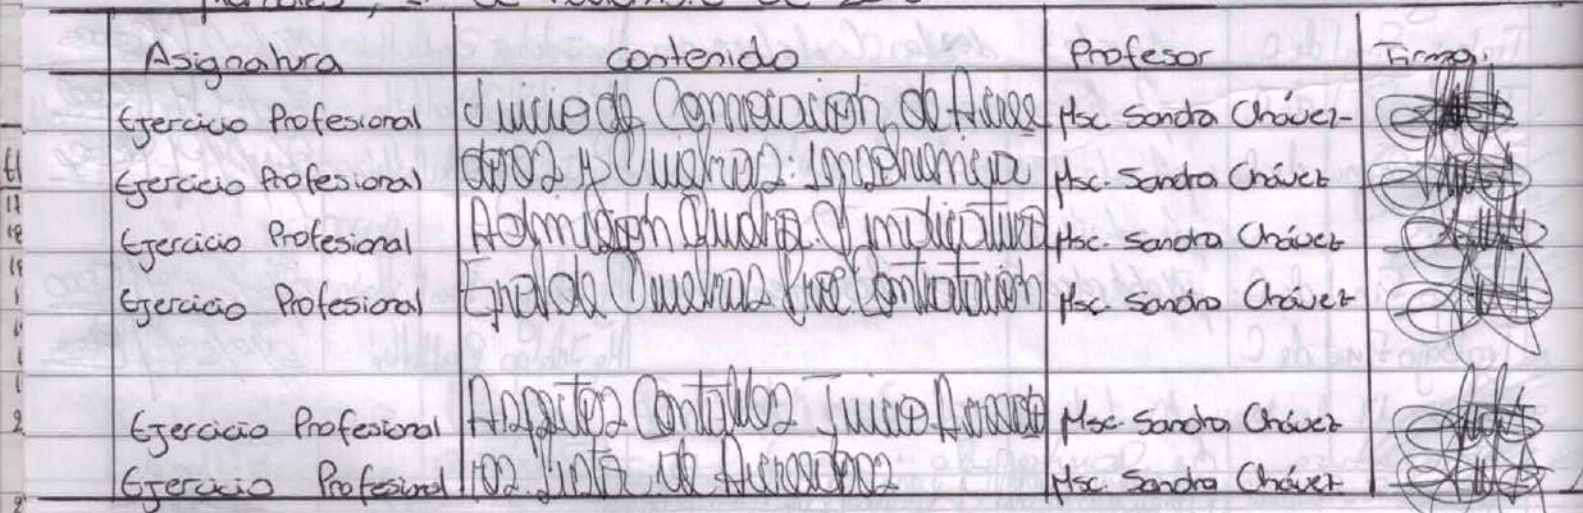 Asignatura contenido Profesor Firma.
Ejercicio Profesional Juicio de Convocación de Acree Msc. Sandra Chávez-
Ejercicio Profesional dores y Quiebras: Insolvencia Msc. Sandra Chávez
Ejercicio Profesional Admisión Quiebra Msc. Sandra Chávez
Ejercicio Profesional de Quiebras Contratación Msc. Sandra Chávez
Ejercicio Profesional Aspectos Contables Juicio Acreedo Msc. Sandra Chávez
Ejercicio Profesional res Junta de Acreedores Msc. Sandra Chávez